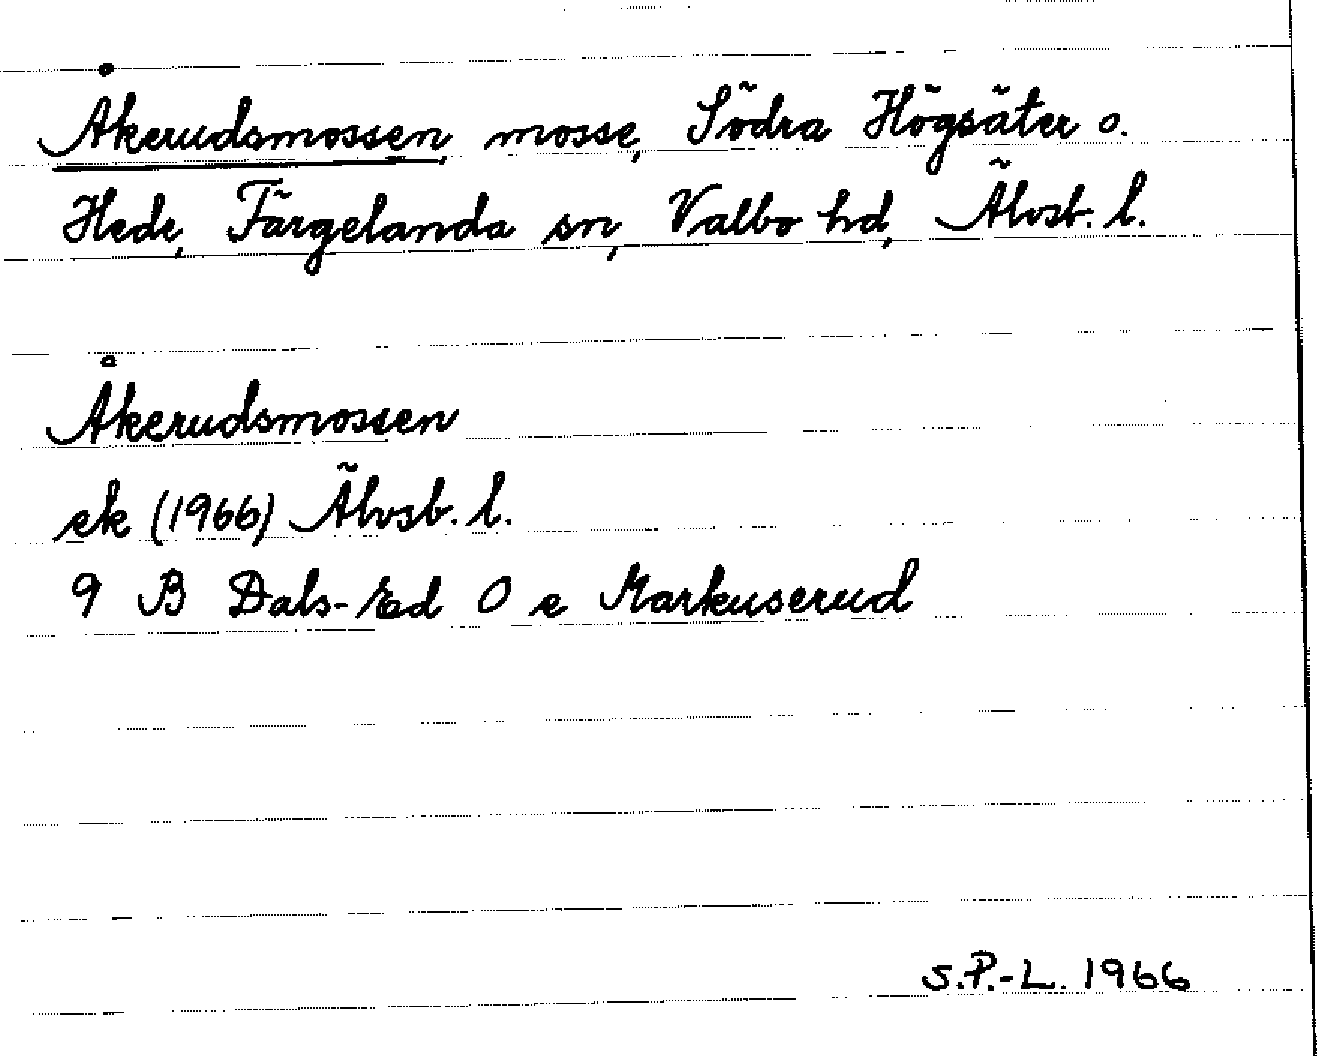 Åkerudsmossen, mosse, Södra Högsäter o.
Hede, Färgelanda sn, Valbo hd, Älvsb. l.
Åkerudsmossen
ek (1966) Älvsb. l.
9 B Dals-Ed O e Markuserud
S.P.-L. 1966